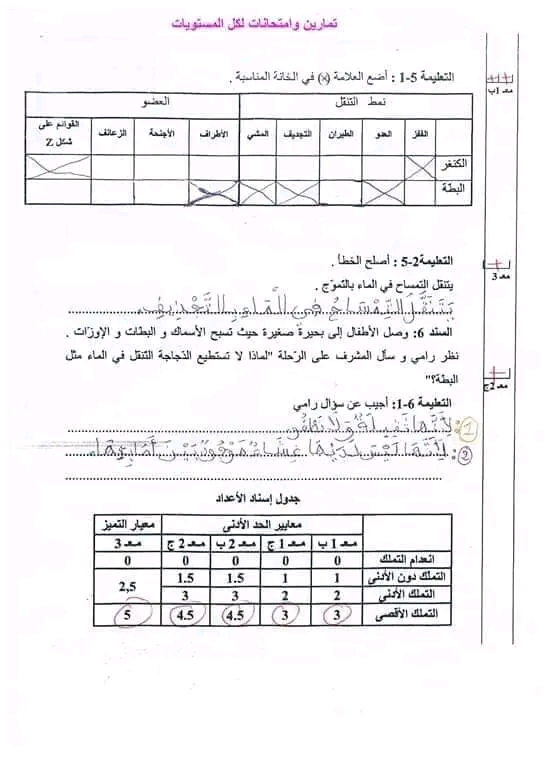 تمارين وامتحانات لكل المستويات
التعليمة 5-1 : أضع العلامة (x) في الخانة المناسبة .
معـ 1ب
نمط التنقل العضو
القفز العدو الطيران التجديف المشي الأطراف الأجنحة الزعانف القوائم على شكل Z
الكنغر
البطة
التعليمة 2-5 : أصلح الخطأ .
معـ 3
يتنقل التمساح في الماء بالتموّج .
يَتَنَقَّلُ التِّمْسَاحُ فِي الْمَاءِ التَّجْدِيفِ
السند 6: وصل الأطفال إلى بحيرة صغيرة حيث تسبح الأسماك و البطات و الإوزات .
نظر رامي و سأل المشرف على الرّحلة "لماذا لا تستطيع الدّجاجة التنقل في الماء مثل
معـ 2ج
البطة؟"
التعليمة 6-1: أجيب عن سؤال رامي
1: لأنّها ثقيلة ولا تطفو
2: لأنّها ليس لديها غشاء موجود بين أصابعها
جدول إسناد الأعداد
معايير الحد الأدنى معيار التميز
معـ 1 ب معـ 1 ج معـ 2 ب معـ 2 ج معـ 3
انعدام التملك 0 0 0 0 0
التملك دون الأدنى 1 1 1.5 1.5 2,5
التملك الأدنى 2 2 3 3
التملك الأقصى 3 3 4.5 4.5 5